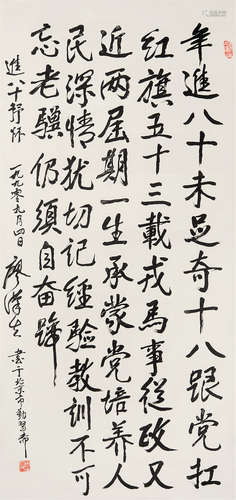 年進八十未足奇十八跟党扛
红旗五十三載戎馬事從政又
近两屆期一生承蒙党培养人
民深情犹切记经验教训不可
忘老驥仍须自奋蹄
進八十抒怀
一九九〇九月四日 廖漢生
書于北京市